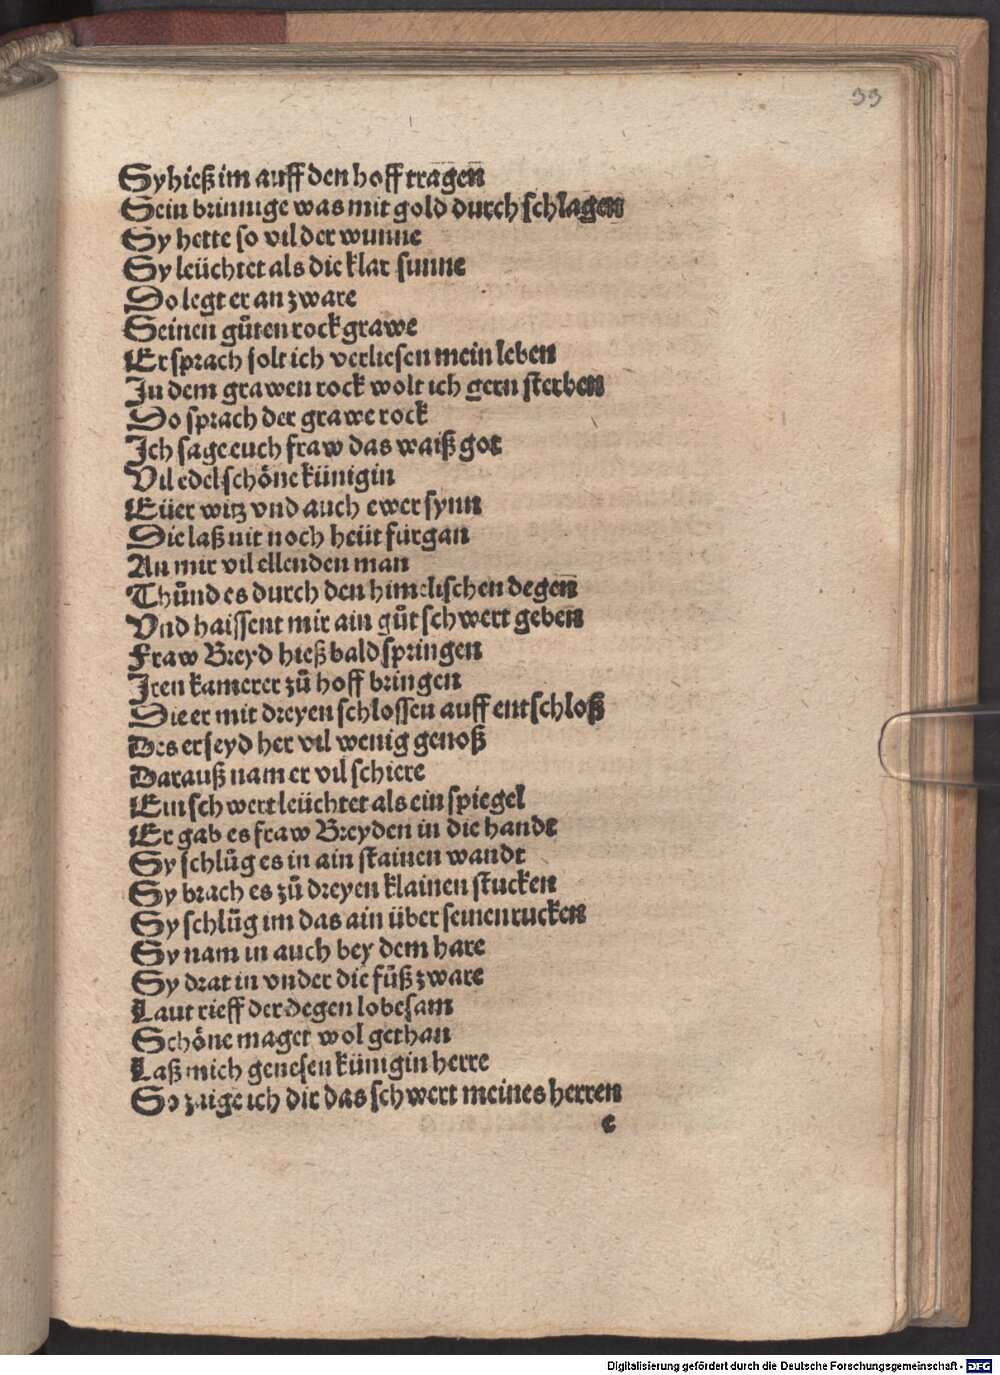 33
Sy hieß im auff den hoff tragen
Sein brinnige was mit gold durch schlagen
Sy hette so vil der wunne
Sy leüchtet als die klar sunne
Do legt er an zware
Seinen gůten rock grawe
Er sprach solt ich verliesen mein leben
In dem grawen rock wolt ich gern sterben
Do sprach der grawe rock
Ich sage euch fraw das waiß got
Vil edel schöne künigin
Eüer witz vnd auch ewer synn
Die laß nit noch heüt fürgan
An mir vil ellenden man
Thůnd es durch den himelischen degen
Vnd haissent mir ain gůt schwert geben
Fraw Breyd hieß bald springen
Iren kamerer zů hoff bringen
Die er mit dreyen schlossen auff entschloß
Des er seyd her vil wenig genoß
Darauß nam er vil schiere
Ein schwert leüchtet als ein spiegel
Er gab es fraw Breyden in die handt
Sy schlůg es in ain stainen wandt
Sy brach es zů dreyen klainen stucken
Sy schlůg im das ain über seinen rucken
Sy nam in auch bey dem hare
Sy drat in vnder die fůß zware
Laut rieff der degen lobesam
Schöne maget wol gethan
Laß mich genesen künigin herre
So zaige ich dir das schwert meines herren
e
Digitalisierung gefördert durch die Deutsche Forschungsgemeinschaft - DFG